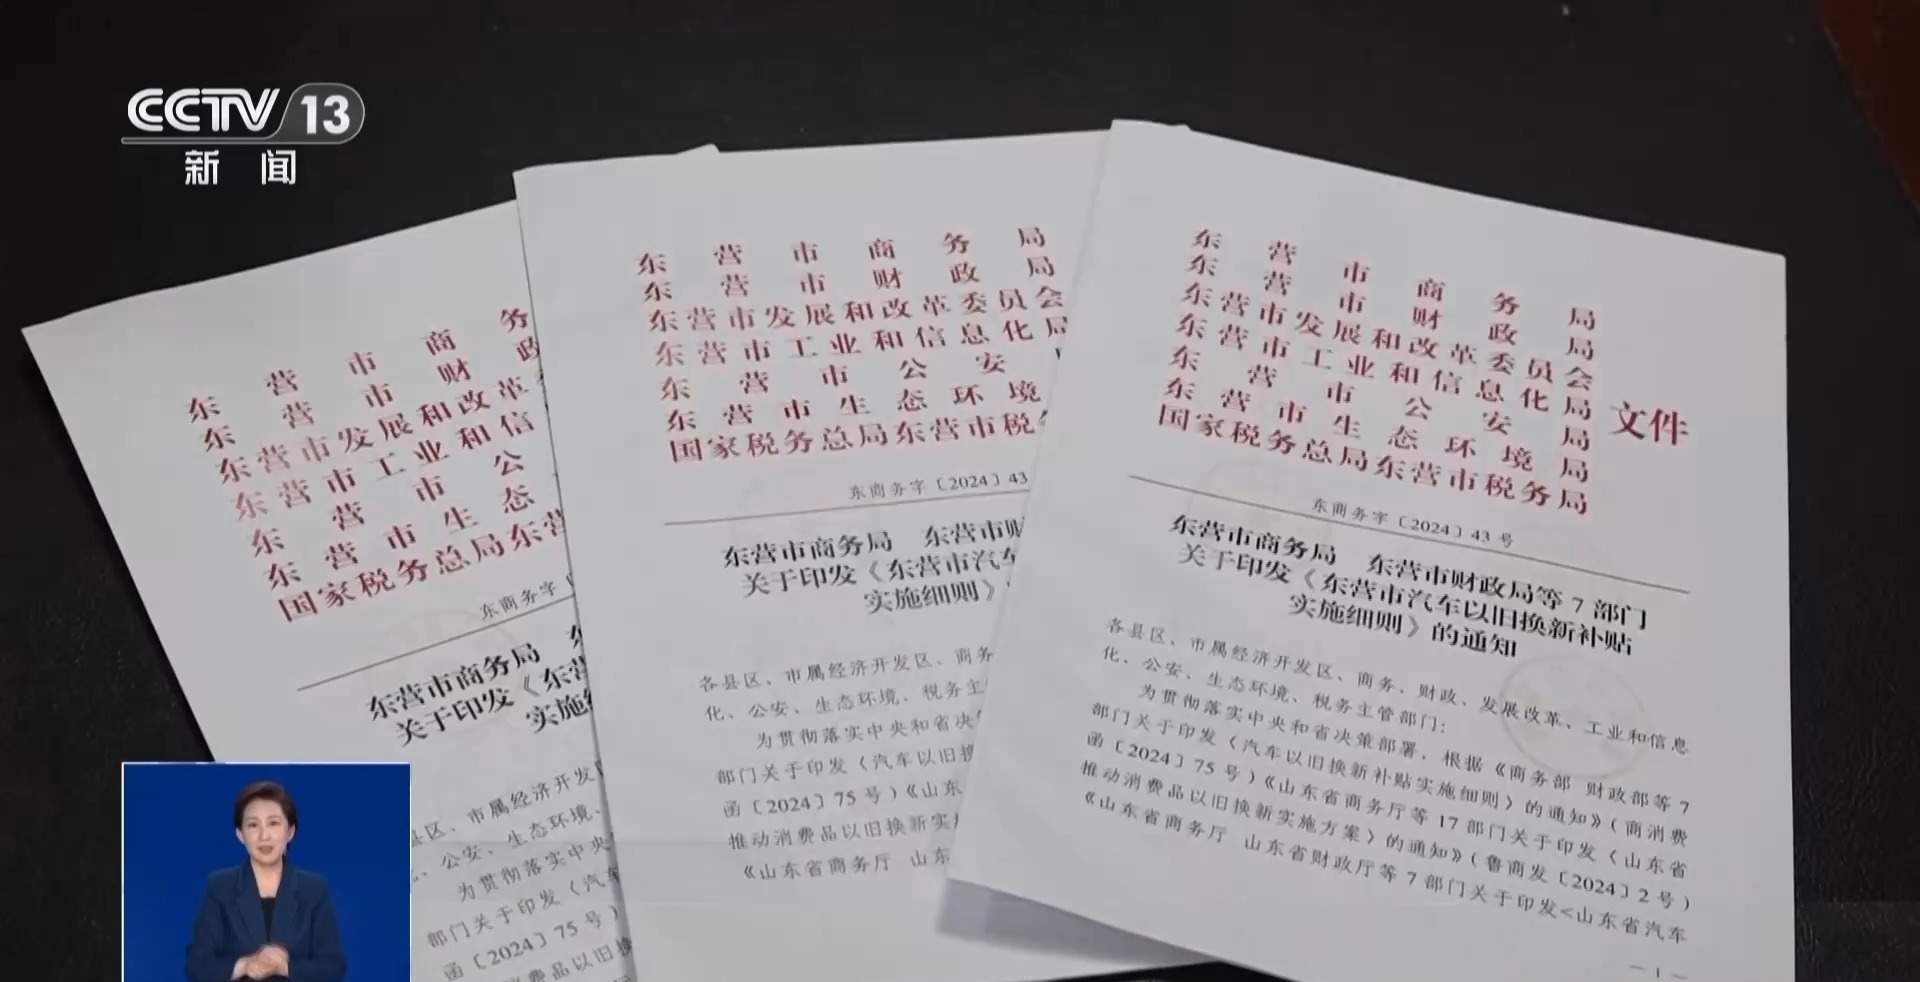 CCTV 13
新闻
东营市商务
东营市财政
东营市发展和改革
东营市工业和信
东营市公
东营市生态
国家税务总局东营
东商务字
东营市商务局
关于印发《东营
实施
县区、市属经济开发区
、公安、生态环境、
为贯彻落实中央
部门关于印发《汽车
函〔2024〕75号）
消费品以旧换
东营市商务局
东营市财政局
东营市发展和改革委员会
东营市工业和信息化局
东营市公安
东营市生态环境
国家税务总局东营市税务
东商务字〔2024〕43
东营市商务局 东营市财
关于印发《东营市汽车
实施细则》
各县区、市属经济开发区、商务
化、公安、生态环境、税务主
为贯彻落实中央和省决策
部门关于印发《汽车以旧换
函〔2024〕75号）《山东
推动消费品以旧换新实施
《山东省商务厅 山东
东营市商务局
东营市财政局
东营市发展和改革委员会
东营市工业和信息化局
东营市公安局
东营市生态环境局
国家税务总局东营市税务局
文件
东商务字〔2024〕43号
东营市商务局 东营市财政局等7部门
关于印发《东营市汽车以旧换新补贴
实施细则》的通知
各县区、市属经济开发区、商务、财政、发展改革、工业和信息
化、公安、生态环境、税务主管部门：
为贯彻落实中央和省决策部署，根据《商务部 财政部等7
部门关于印发〈汽车以旧换新补贴实施细则〉的通知》（商消费
函〔2024〕75号）《山东省商务厅等17部门关于印发〈山东省
推动消费品以旧换新实施方案〉的通知》（鲁商发〔2024〕2号）
《山东省商务厅 山东省财政厅等7部门关于印发<山东省汽车
— 1 —